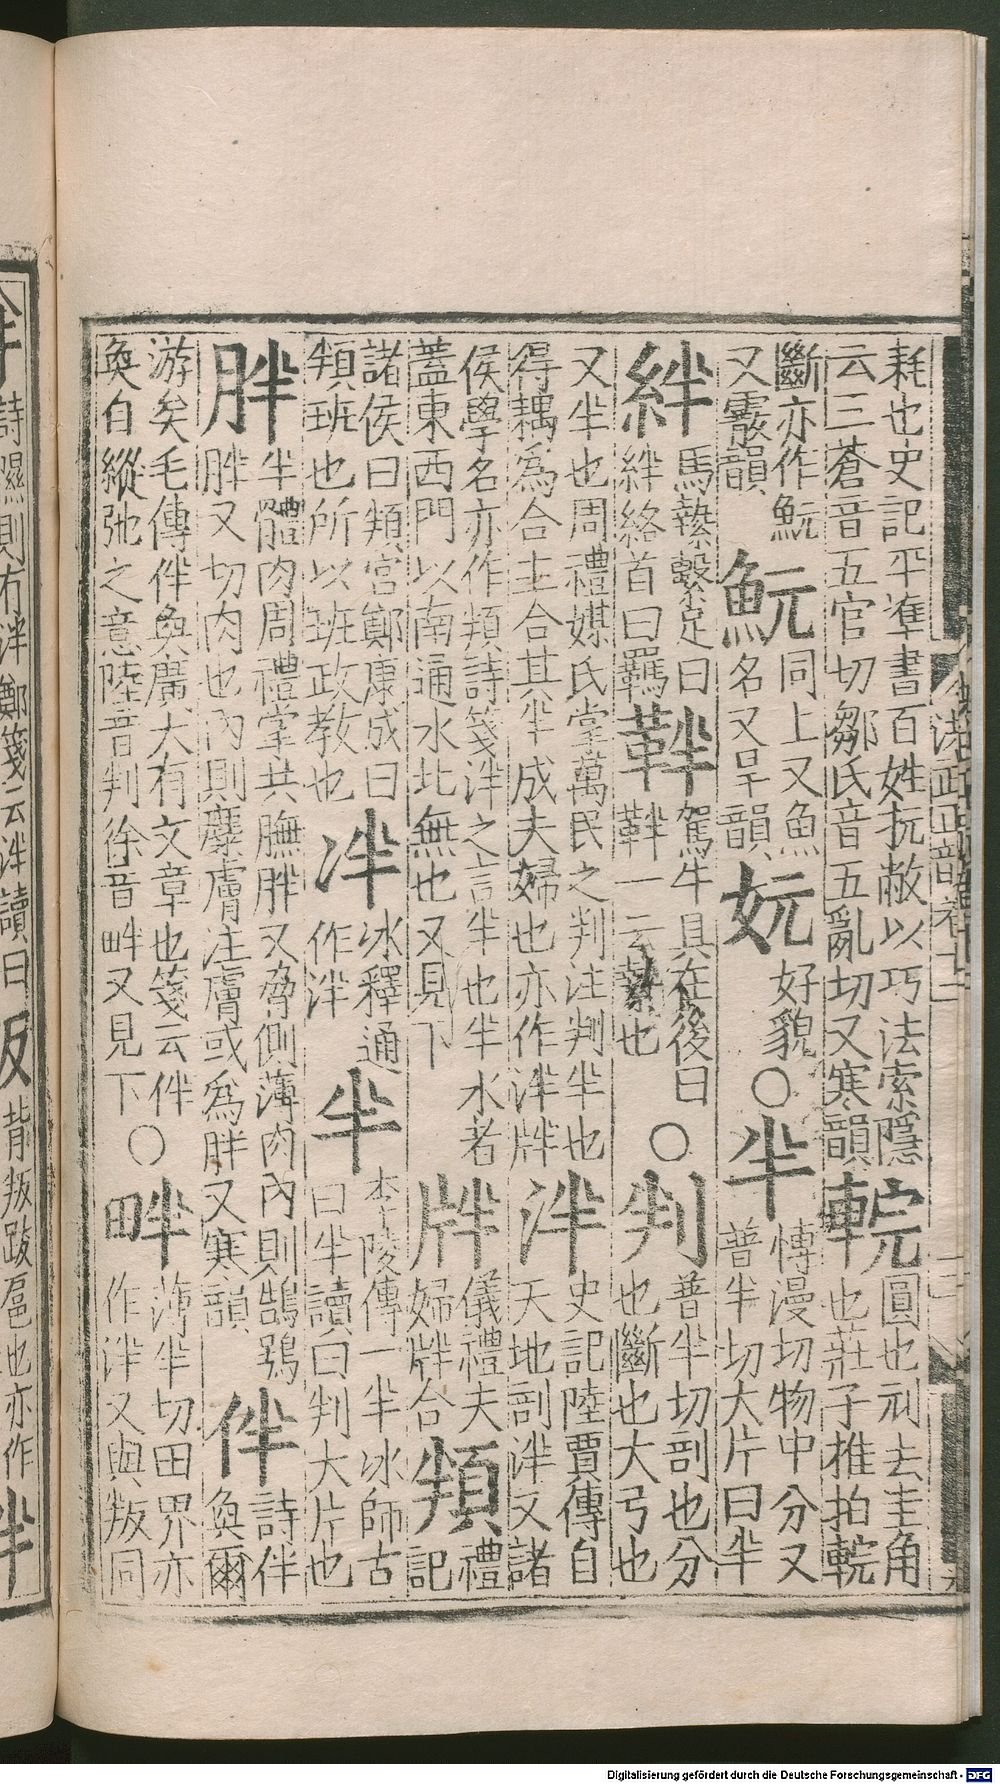 洪武正韻卷十二
耗也史記平準書百姓抏敝以巧法索隱
云三蒼音五官切鄒氏音五亂切又寒韻
輐
圓也刓去圭角
也莊子推拍輐
斷亦作魭
又霰韻
魭
同上又魚
名又旱韻
妧
好貌○
半
愽漫切物中分又
普半切大片曰半
絆
馬縶繫足曰
絆絡首曰羈
靽
駕牛具在後曰
靽一云縶也
○判
普半切剖也分
也斷也大弓也
又半也周禮媒氏掌萬民之判注判半也
得耦爲合主合其半成夫婦也亦作泮牉
泮
史記陸賈傳自
天地剖泮又諸
侯學名亦作頖詩箋泮之言半也半水者
蓋東西門以南通水北無也又見下
牉
儀禮夫
婦牉合
頖
禮
記
諸侯曰頖宮鄭康成曰
頖班也所以班政教也
冸
冰釋通
作泮
半
李陵傳一半冰師古
曰半讀曰判大片也
胖
半體肉周禮掌共膴胖又脅側薄肉內則鵠鴞
胖又切肉也內則麋膚注膚或爲胖又寒韻
伴
詩伴
奐爾
游矣毛傳伴奐廣大有文章也箋云伴
奐自縱弛之意陸音判徐音畔又見下
○畔
薄半切田界亦
作泮又與叛同
詩隰則有泮鄭箋云泮讀曰
背叛跋扈也亦作
Digitalisierung gefördert durch die Deutsche Forschungsgemeinschaft - DFG